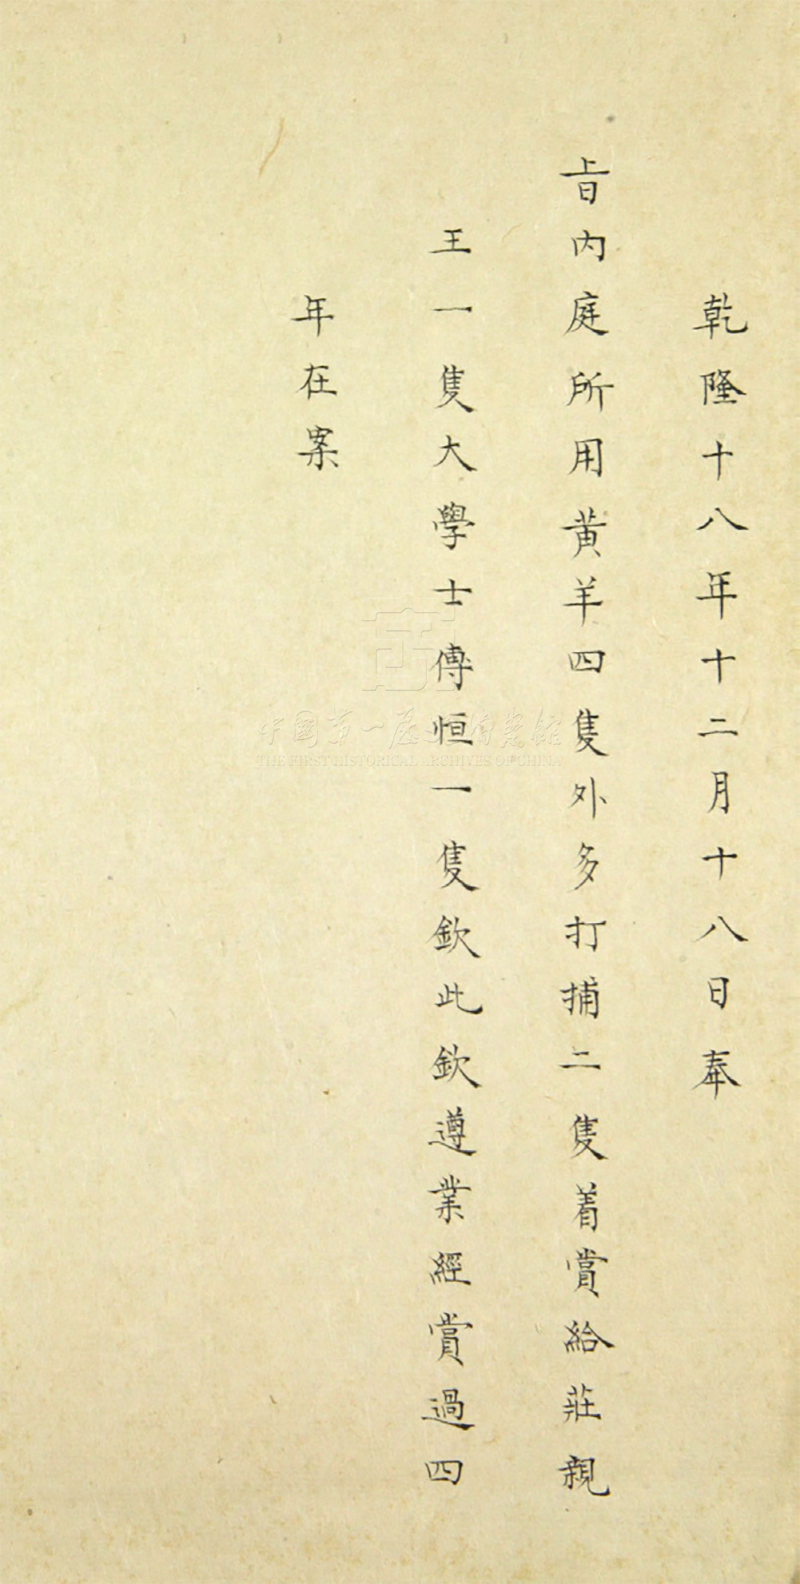 乾隆十八年十二月十八日奉
旨内庭所用黄羊四隻外多打捕二隻着賞給莊親
王一隻大學士傅恒一隻欽此欽遵業經賞過四
年在案
中國第一歷史檔案館
THE FIRST HISTORICAL ARCHIVES OF CHINA